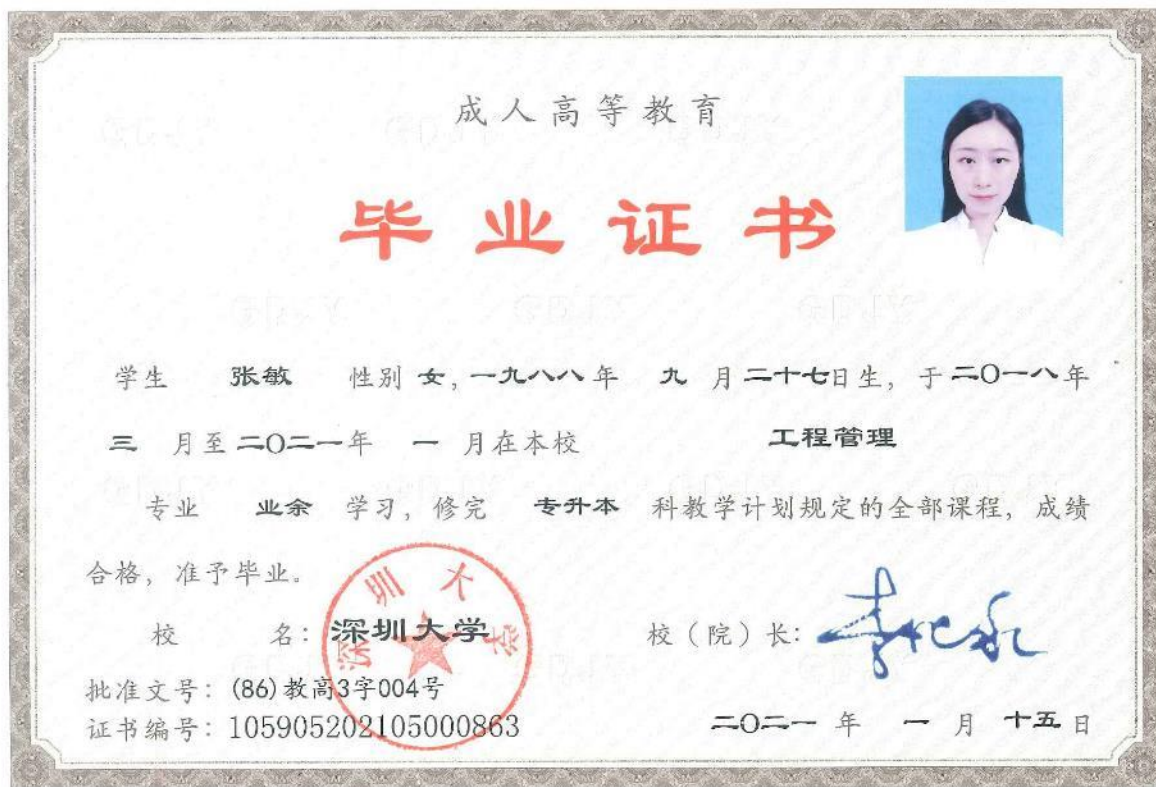 成人高等教育
毕业证书
学生 张敏 性别 女，一九八八年 九 月二十七日生，于二〇一八年
三 月至二〇二一年 一 月在本校 工程管理
专业 业余 学习，修完 专升本 科教学计划规定的全部课程，成绩
合格，准予毕业。
校 名：深圳大学 校（院）长：
深圳大学
批准文号：(86)教高3字004号
证书编号：105905202105000863
二〇二一 年 一 月 十五 日